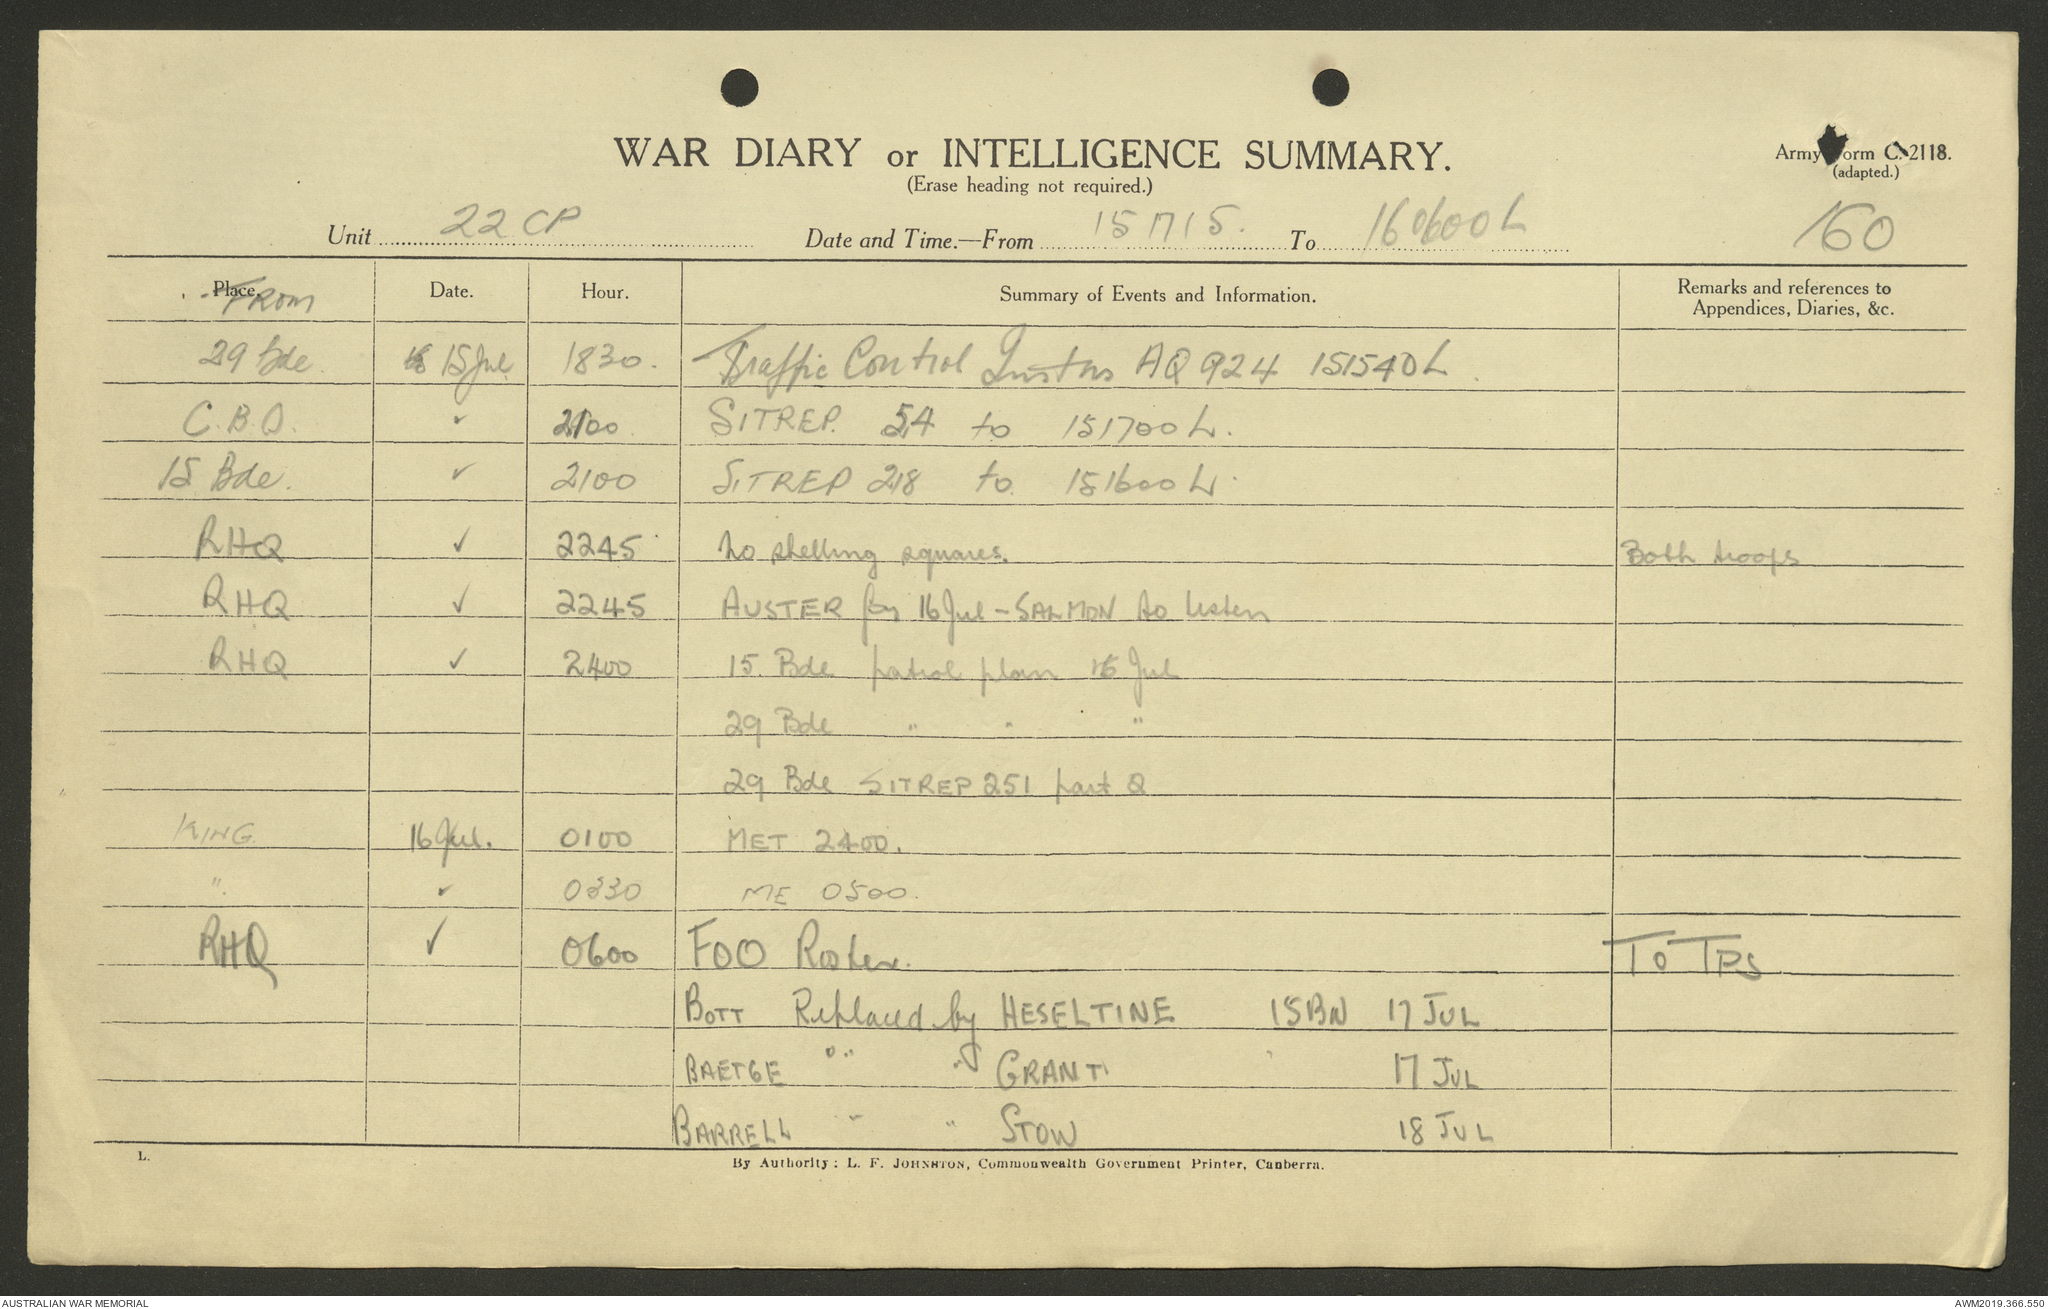 WAR DIARY or INTELLIGENCE SUMMARY.
(Erase heading not required.)
Army Form C. 2118.
(adapted.)
Unit 22 CP Date and Time.—From 151715. To 160600L
160
Place. FROM Date. Hour. Summary of Events and Information. Remarks and references to Appendices, Diaries, &c.
29 Bde. 15 Jul 1830. Traffic Control AQ 924 151540L.
C.B.O. ✓ 2100 SITREP. 54 to 151700L.
15 Bde. ✓ 2100 SITREP 218 to 151600L.
RHQ ✓ 2245 No shelling squares. Both troops
RHQ ✓ 2245 AUSTER for 16 Jul - SALMON to listen
RHQ ✓ 2400 15 Bde patrol plan 16 Jul
29 Bde " " "
29 Bde SITREP 251 part 2
KING 16 Jul. 0100 MET 2400.
". ✓ 0330 ME 0500.
RHQ ✓ 0600 FOO Roster. To TPS
BOTT Replaced by HESELTINE 15BN 17 JUL
BAETGE " " GRANT ' 17 JUL
BARRELL " " STOW 18 JUL
L.
By Authority: L. F. JOHNSTON, Commonwealth Government Printer, Canberra.
AUSTRALIAN WAR MEMORIAL
AWM2019.366.550